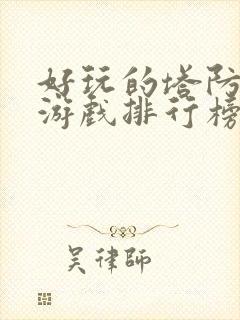 好玩的塔防
游戏排行榜
吴律师